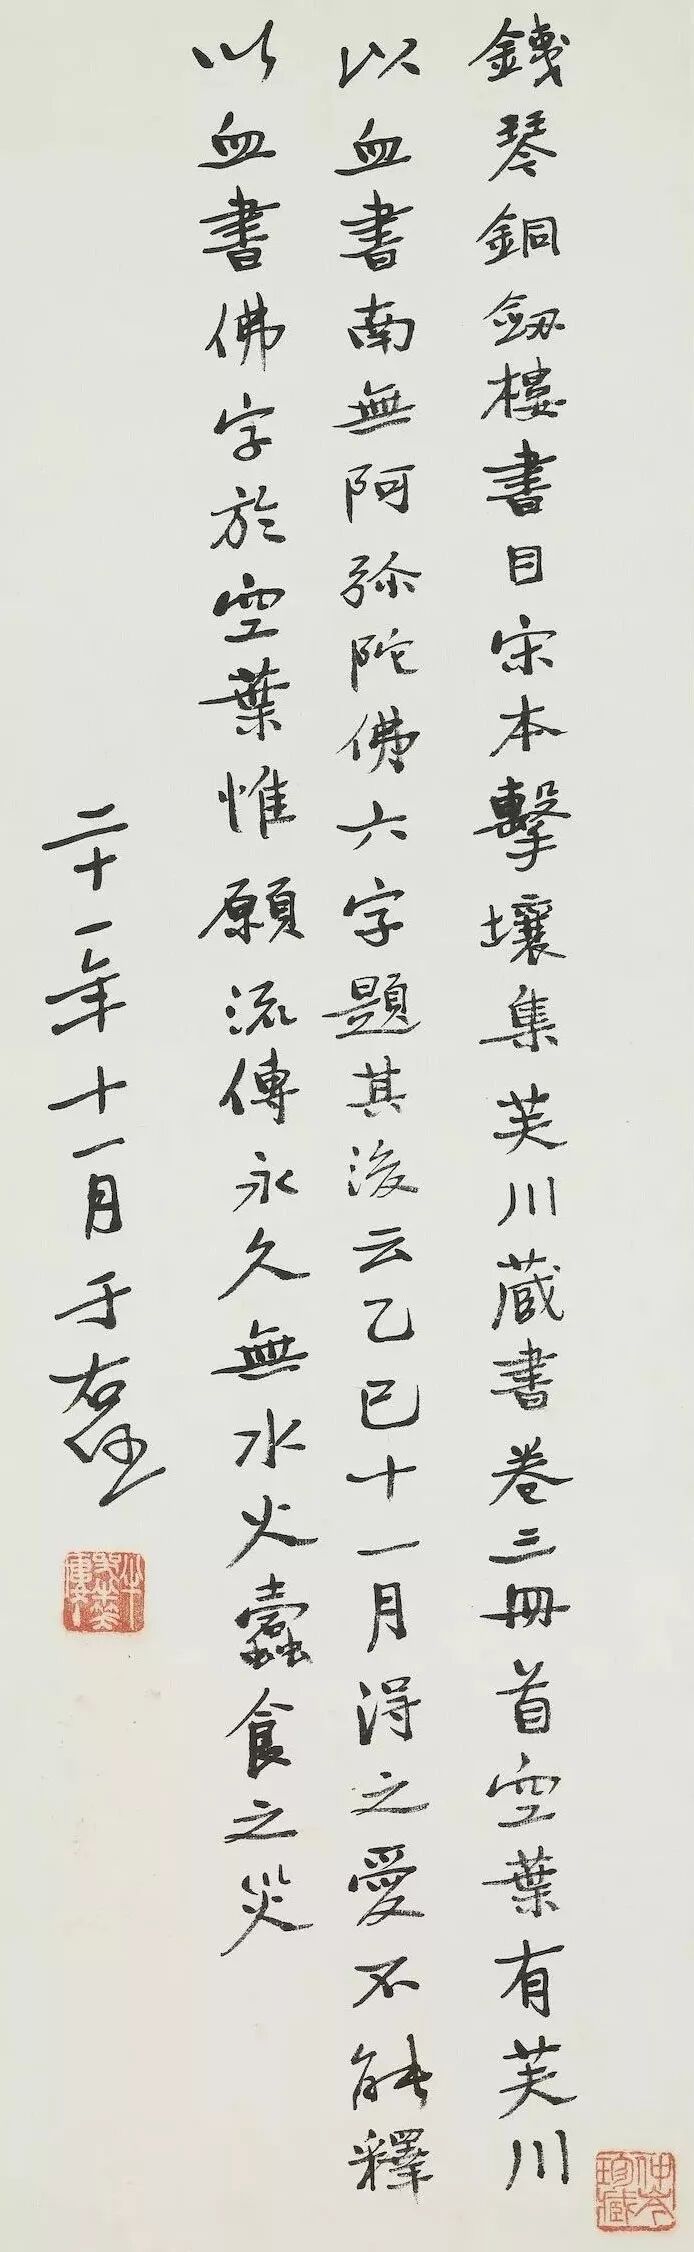 鐵琴銅劒樓書目宋本擊壤集芙川蔵書卷三冊首空葉有芙川
以血書南無阿弥陀佛六字題其後云乙巳十一月得之愛不能釋
以血書佛字於空葉惟願流傳永久無水火蠹食之災
二十一年十一月于右任
仲岑珍藏